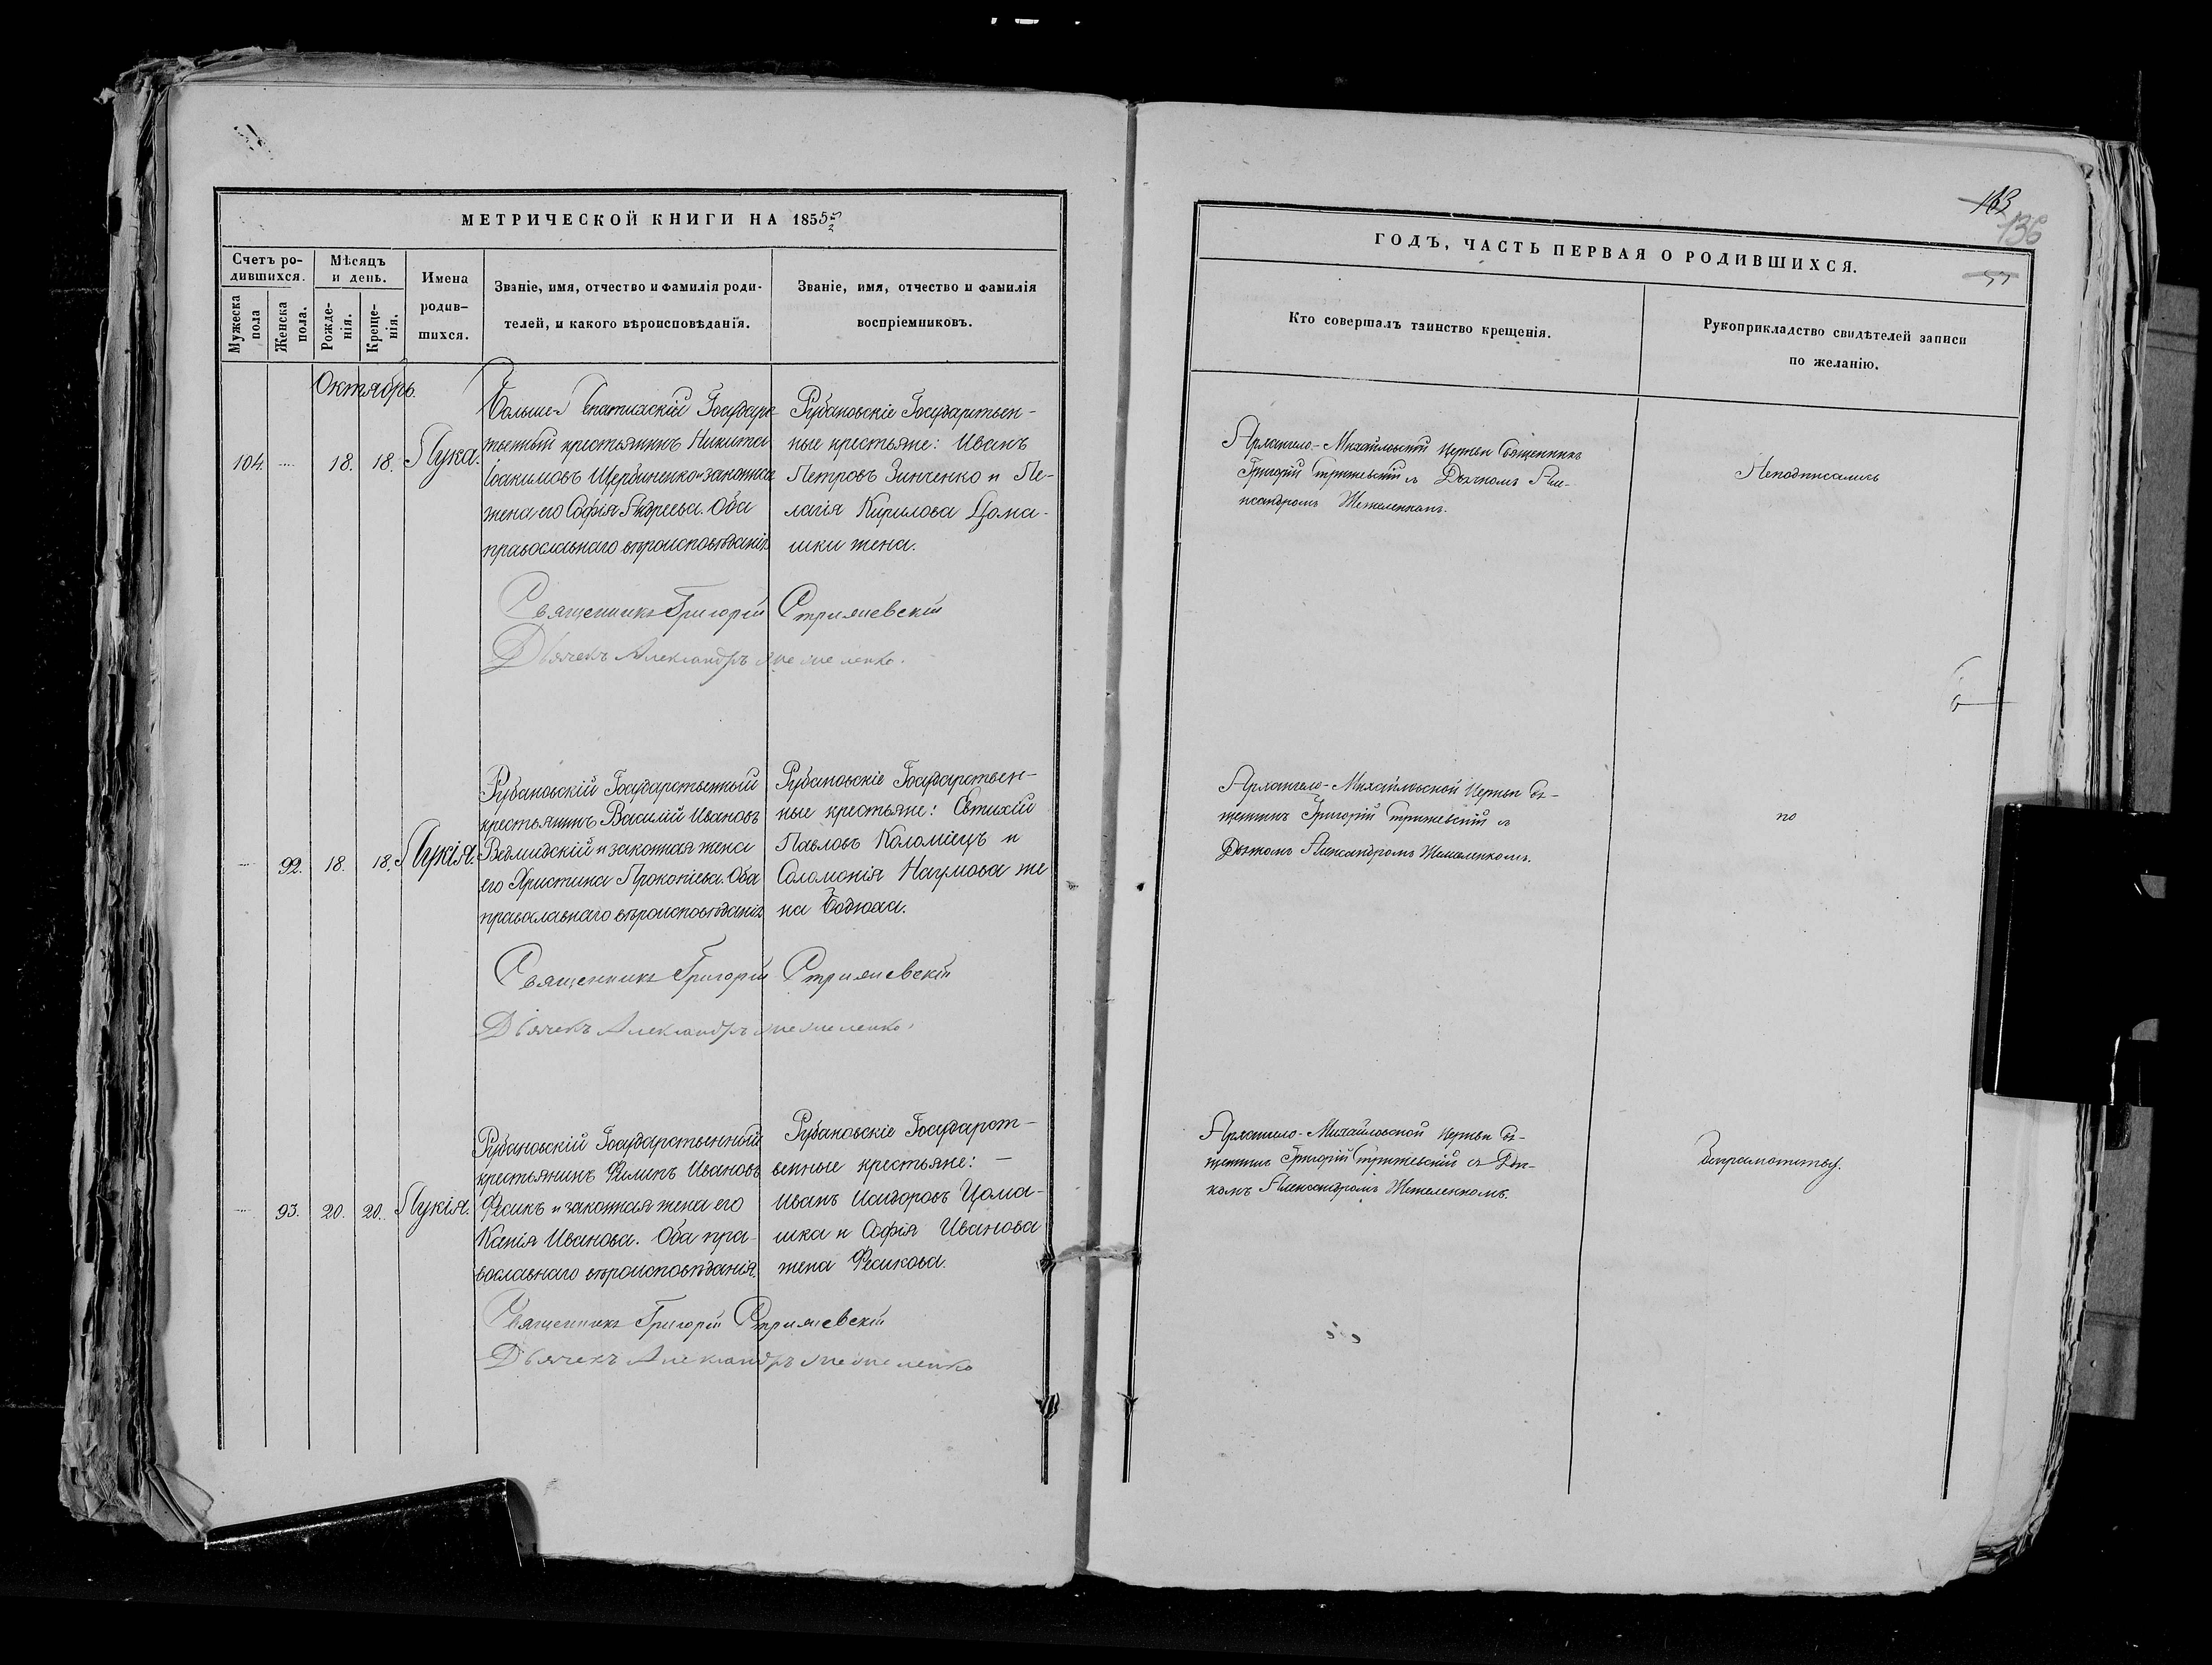 МЕТРИЧЕСКОЙ КНИГИ НА 1855
Счетъ ро-
дившихся.
Мѣсяцъ
и день.
Мужеска
пола
Женска
пола.
Рожде-
нія.
Креще-
нія.
Имена
родив-
шихся.
Званіе, имя, отчество и фамилія роди-
телей, и какого вѣроисповѣданія.
Званіе, имя, отчество и фамилія
воспріемниковъ.
Октябрь.
104.
18.
18.
Лука.
Государс-
твенный крестьянинъ Никита
Іоакимовъ Щербиненко и законная
жена его Софія Андреева. Оба
православнаго вѣроисповѣданія.
Рубановскіе Государствен-
ные крестьяне: Иванъ
Петровъ Зинченко и Пе-
лагія Кирилова Цома-
шки жена.
Священникъ Григорій Стрижевскій
Дьячекъ Александръ Жежеленко.
92.
18.
18.
Лукія.
Рубановскій Государственный
крестьянинъ Василій Ивановъ
и законная жена
его Христина Прокопіева. Оба
православнаго вѣроисповѣданія
Рубановскіе Государствен-
ные крестьяне: Евтихій
Павловъ Коломіецъ и
Соломонія Наумова же
на Бодюха.
Священникъ Григорій Стрижевскій
Дьячекъ Александръ Жежеленко.
93.
20.
20.
Лукія.
Рубановскій Государственный
крестьянинъ Филипъ Ивановъ
Фесикъ и законная жена его
Ксенія Иванова. Оба пра-
вославнаго вѣроисповѣданія.
Рубановскіе Государст-
венные крестьяне: —
Иванъ Исидоровъ Цома-
шка и Софія Иванова
жена Фесикова.
Священникъ Григорій Стрижевскій
Дьячекъ Александръ Жежеленко
163
136
ГОДЪ, ЧАСТЬ ПЕРВАЯ О РОДИВШИХСЯ.
Кто совершалъ таинство крещенія.
Рукоприкладство свидѣтелей записи
по желанію.
Архангело-Михайловской церкви Священникъ
Григорій Стрижевскій съ Дьячкомъ Але-
ксандромъ Жежеленкомъ.
Неподписались
Архангело-Михайловской церкви Свя-
щенникъ Григорій Стрижевскій съ
Дьячкомъ Александромъ Жежеленкомъ.
по
Архангело-Михайловской церкви Свя-
щенникъ Григорій Стрижевскій съ Дья-
комъ Александромъ Жежеленкомъ.
безграмотству.